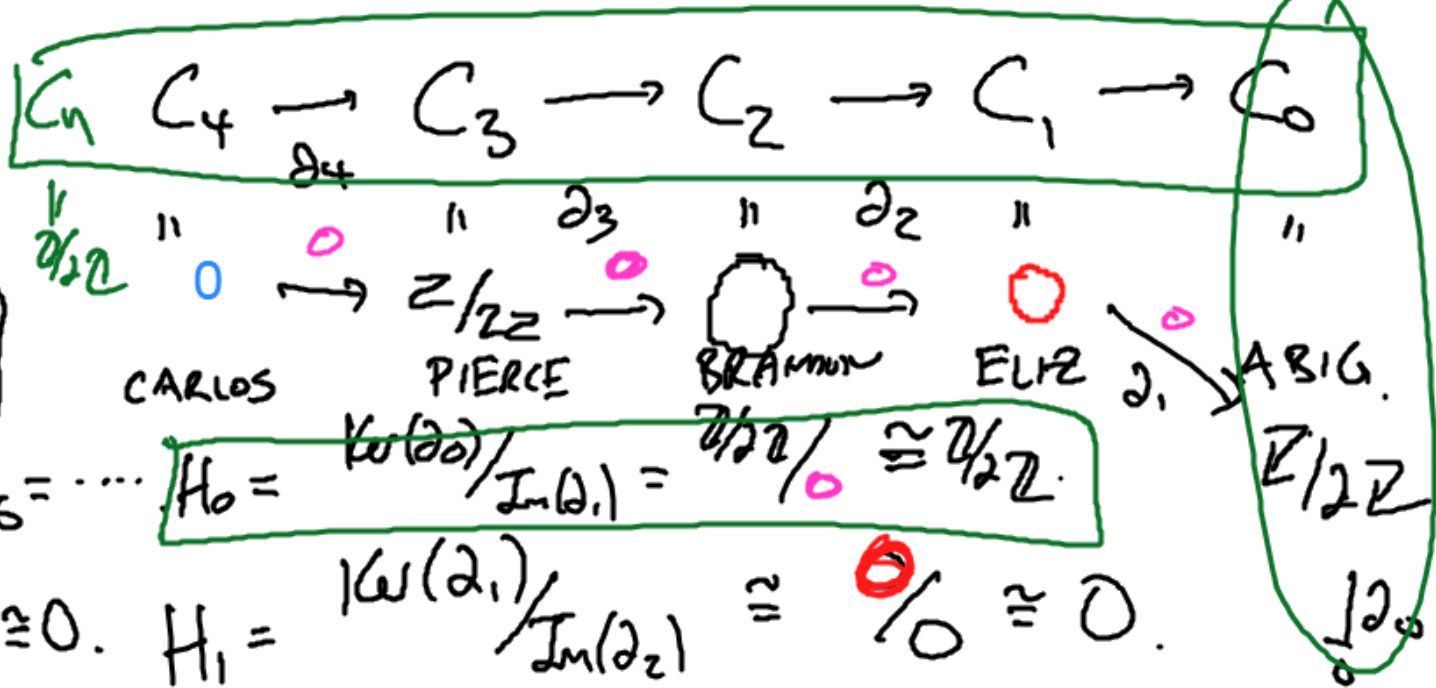 Cₙ C₄ → C₃ → C₂ → C₁ → C₀
∂₄ ∂₃ ∂₂
〃 〃 〃 〃 〃 〃
ℤ/2ℤ 0 0→ Z/2Z 0→ 0 0→ 0 0
CARLOS PIERCE BRANDON ELIZ ∂₁ ABIG.
H₀ = Ker(∂₀)/Im(∂₁) = ℤ/2ℤ/0 ≅ ℤ/2ℤ. ℤ/2ℤ
= ····
≅0. H₁ = Ker(∂₁)/Im(∂₂) ≅ 0/0 ≅ 0. ↓∂₀
0